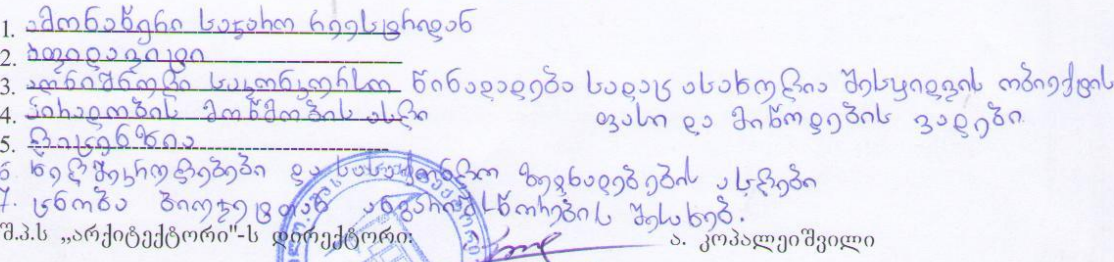 1. ამონაწერი საჯარო რეესტრიდან
2. აფიდავიტი
3. აღნიშნული საკონკურსო წინადადება სადაც ასახულია შესყიდვის ობიექტის
4. პირადობის მოწმობის ასლი ფასი და მიწოდების ვადები
5. ლიცენზია
6. ხელშეკრულებები და სასაქონლო ზედნადებების ასლები
7. ცნობა ბიუჯეტთან ანგარიშსწორების შესახებ.
შ.პ.ს „არქიტექტორი"-ს დირექტორი: ა. კოპალეიშვილი